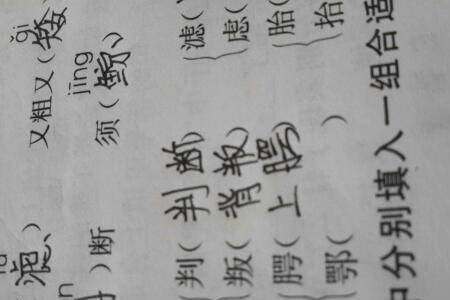 ǎi
又粗又(矮
jīng
)断 须(鲸、)
判(判断) 滤(
叛(背叛) 虑(
腭(上腭) 胎(
鄂( ) 抬(
分别填入一组合适